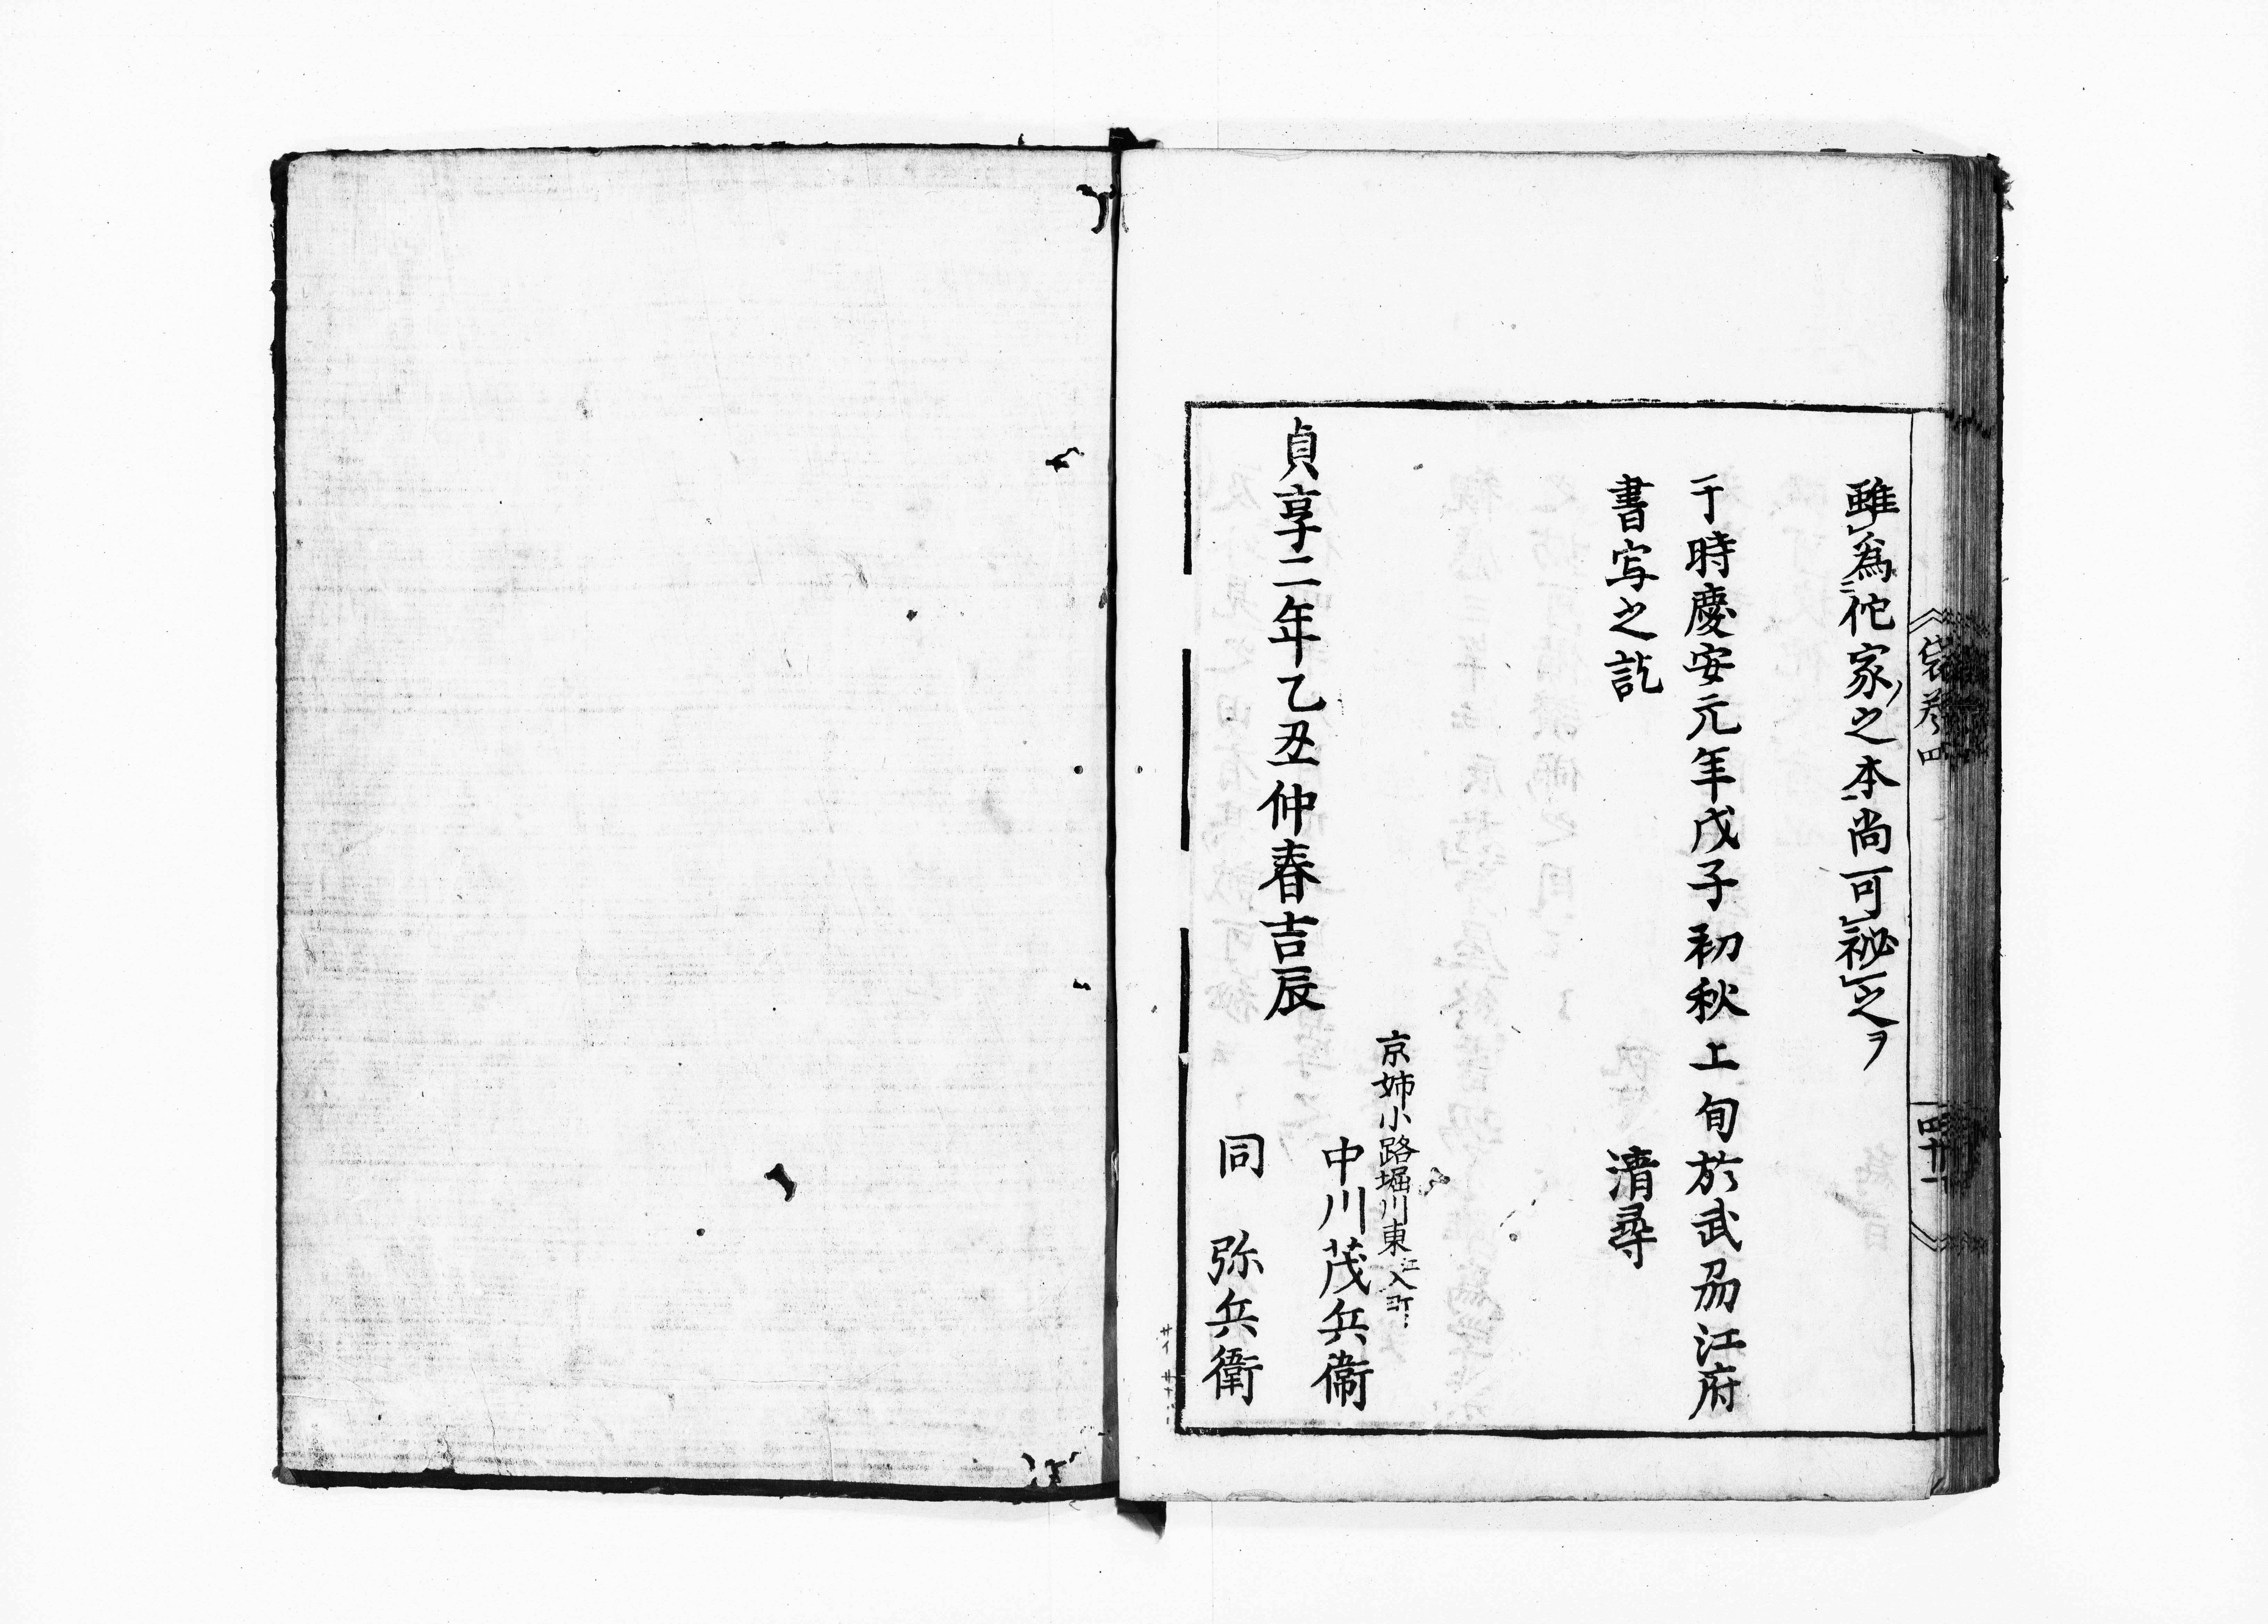 雖為佗家之本尚可祕之ヲ
于時慶安元年戊子初秋上旬於武刕江府
書写之訖　清尋
京姉小路堀川東江入町
中川茂兵衞
貞享二年乙丑仲春吉辰
同　弥兵衛
袋巻四
四十一